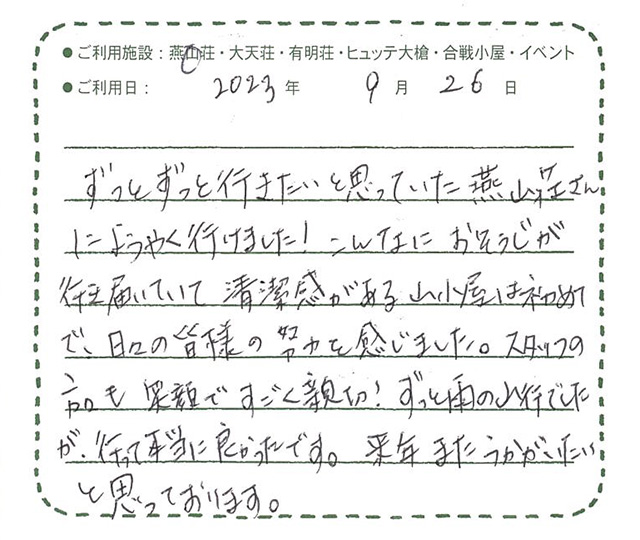 ● ご利用施設：燕山荘・大天荘・有明荘・ヒュッテ大槍・合戦小屋・イベント
● ご利用日： 2023 年 9 月 26 日
ずっとずっと行きたいと思っていた燕山荘さん
にようやく行けました！こんなにおそうじが
行き届いていて清潔感がある山小屋は初めて
で、日々の皆様の努力を感じました。スタッフの
方も笑顔ですごく親切！ずっと雨の山行でした
が、行って本当に良かったです。来年またうかがいたい
と思っております。